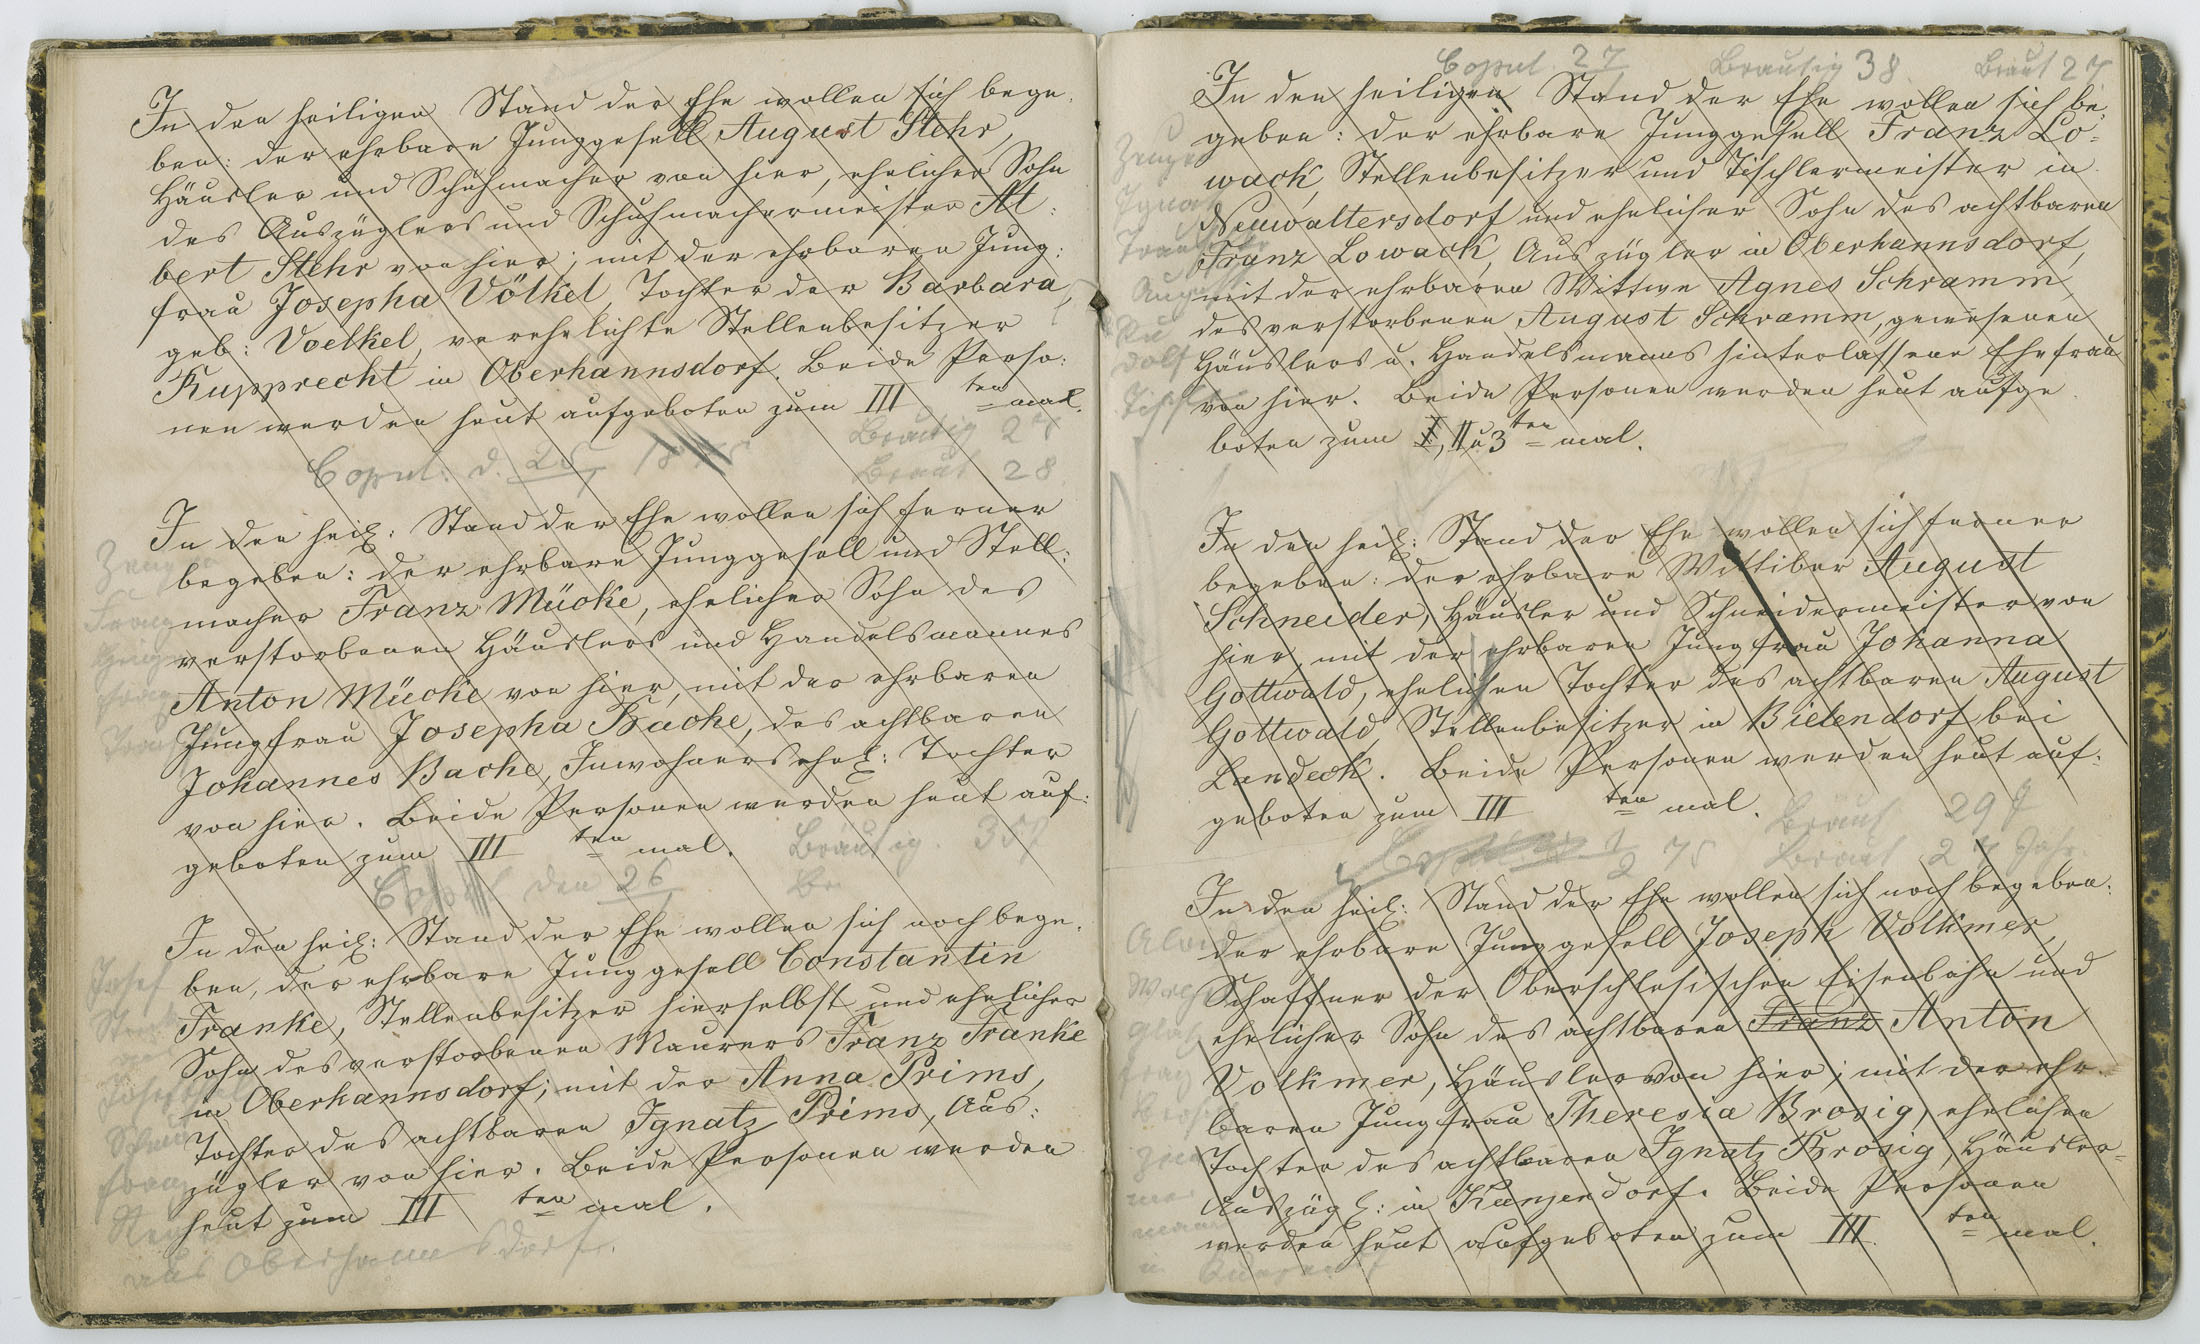 In den heiligen Stand der Ehe wollen sich bege-
ben: der ehrbare Junggesell August Stehr,
Häusler und Schuhmacher von hier, ehelicher Sohn
des Auszüglers und Schuhmachermeister Al-
bert Stehr von hier; mit der ehrbaren Jung-
frau Josepha Völkel, Tochter der Barbara,
geb: Voelkel, verehelichte Stellenbesitzer
Rupprecht in Oberhannsdorf. Beide Perso-
nen werden heut aufgeboten zum III ten mal.
Bräutig 27
Copul: d. 25/1 1875
Braut 28.
In den heil: Stand der Ehe wollen sich ferner
begeben: der ehrbare Junggesell und Stell-
macher Franz Mücke, ehelicher Sohn des
verstorbenen Häuslers und Handelsmannes
Anton Mücke von hier, mit der ehrbaren
Jungfrau Josepha Bache, des achtbaren
Johannes Bache, Inwohners ehel: Tochter
von hier. Beide Personen werden heut auf-
geboten zum III ten mal.
Bräutig. 35
Copul den 26
In den heil: Stand der Ehe wollen sich noch bege-
ben, der ehrbare Junggesell Constantin
Franke, Stellenbesitzer hierselbst und ehelicher
Sohn des verstorbenen Maurers Franz Franke
in Oberhannsdorf; mit der Anna Prims,
Tochter des achtbaren Ignatz Prims, Aus-
zügler von hier. Beide Personen werden
heut zum III ten mal.
aus Oberhannsdorf.
Josef
Franz
Copul. 27/1 Bräutig 38. Braut 27
In den heiligen Stand der Ehe wollen sich be-
geben: der ehrbare Junggesell Franz Lo-
wack, Stellenbesitzer und Tischlermeister in
Neuwaltersdorf und ehelicher Sohn des achtbaren
Franz Lowack, Auszügler in Oberhannsdorf,
mit der ehrbaren Wittwe Agnes Schramm,
des verstorbenen August Schramm, gewesenen
Häuslers u. Handelsmanns hinterlassene Ehefrau
von hier. Beide Personen werden heut aufge
boten zum I, II u 3 ten mal.
In den heil: Stand der Ehe wollen sich ferner
begeben: der ehrbare Wittiber August
Schneider, Häusler und Schneidermeister von
hier, mit der ehrbaren Jungfrau Johanna
Gottwald, ehelichen Tochter des achtbaren August
Gottwald, Stellenbesitzer in Bielendorf bei
Landeck. Beide Personen werden heut auf-
geboten zum III ten mal.
Bräut 29
Braut 27 Jahr.
In den heil: Stand der Ehe wollen sich noch begeben:
der ehrbare Junggesell Joseph Volkmer,
Schaffner der Oberschlesischen Eisenbahn und
ehelicher Sohn des achtbaren Franz Anton
Volkmer, Häusler von hier; mit der ehr-
baren Jungfrau Theresia Brosig, ehelichen
Tochter des achtbaren Ignatz Brosig, Häusler-
Auszügl: in Kunzendorf. Beide Personen
werden heut aufgeboten zum III. ten mal.